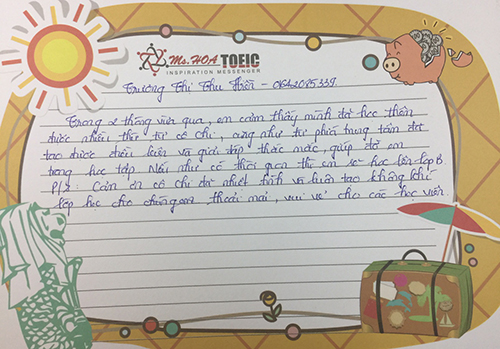 Ms.HOA TOEIC
INSPIRATION MESSENGER
Trương Thị Thu - 0642095339
Trong 2 tháng vừa qua, em cảm thấy mình đã học thêm
được nhiều thứ từ cô Chi, cũng như từ phía trung tâm đã
tạo được điều kiện và giải đáp thắc mắc, giúp đỡ em
trong học tập. Nếu như có thời gian thì em sẽ học lên lớp B
P/s: Cảm ơn cô chi đã nhiệt tình và luôn tạo không khí
lớp học cho chúng em thoải mái, vui vẻ cho các học viên